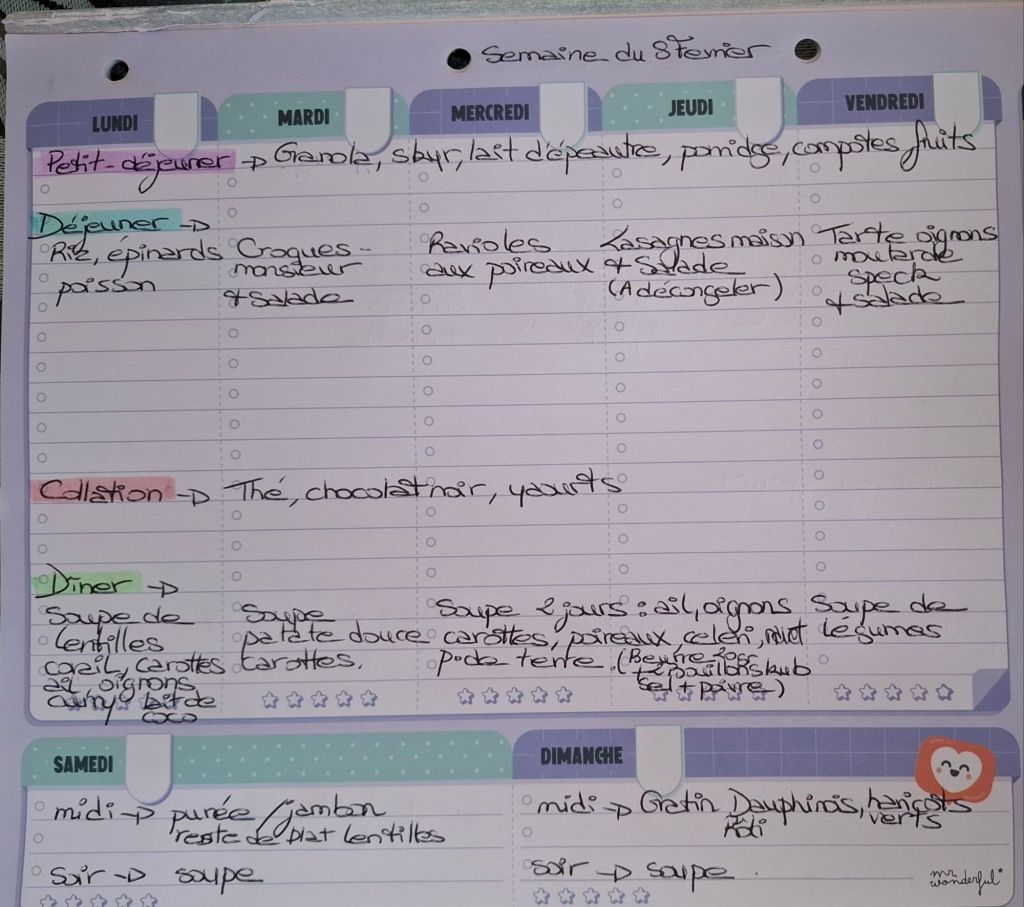 Semaine du 8 Fevrier
LUNDI MARDI MERCREDI JEUDI VENDREDI
Petit-déjeuner → Granola, skyr, lait d'épeautre, porridge, compotes fruits
Déjeuner →
Riz, épinards
poisson
Croques-
monsieur
+ Salade
Ravioles
aux poireaux
Lasagnes maison
+ Salade
(A décongeler)
Tarte oignons
moutarde
speck
+ salade
Collation → Thé, chocolat noir, yaourts
Diner →
Soupe de
lentilles
corail, carottes
ail oignons
curry lait de
coco
Soupe
patate douce
carottes.
Soupe 2 jours : ail, oignons
carottes, poireaux, celeri, navet
p. de terre. (Beurre 20gr
+ 2 bouillons kub
sel + poivre)
Soupe de
légumes
SAMEDI
midi → purée / jambon
reste de plat lentilles
soir → soupe
DIMANCHE
midi → Gratin Dauphinois, haricots
verts
Rôti
soir → soupe.
mr wonderful*